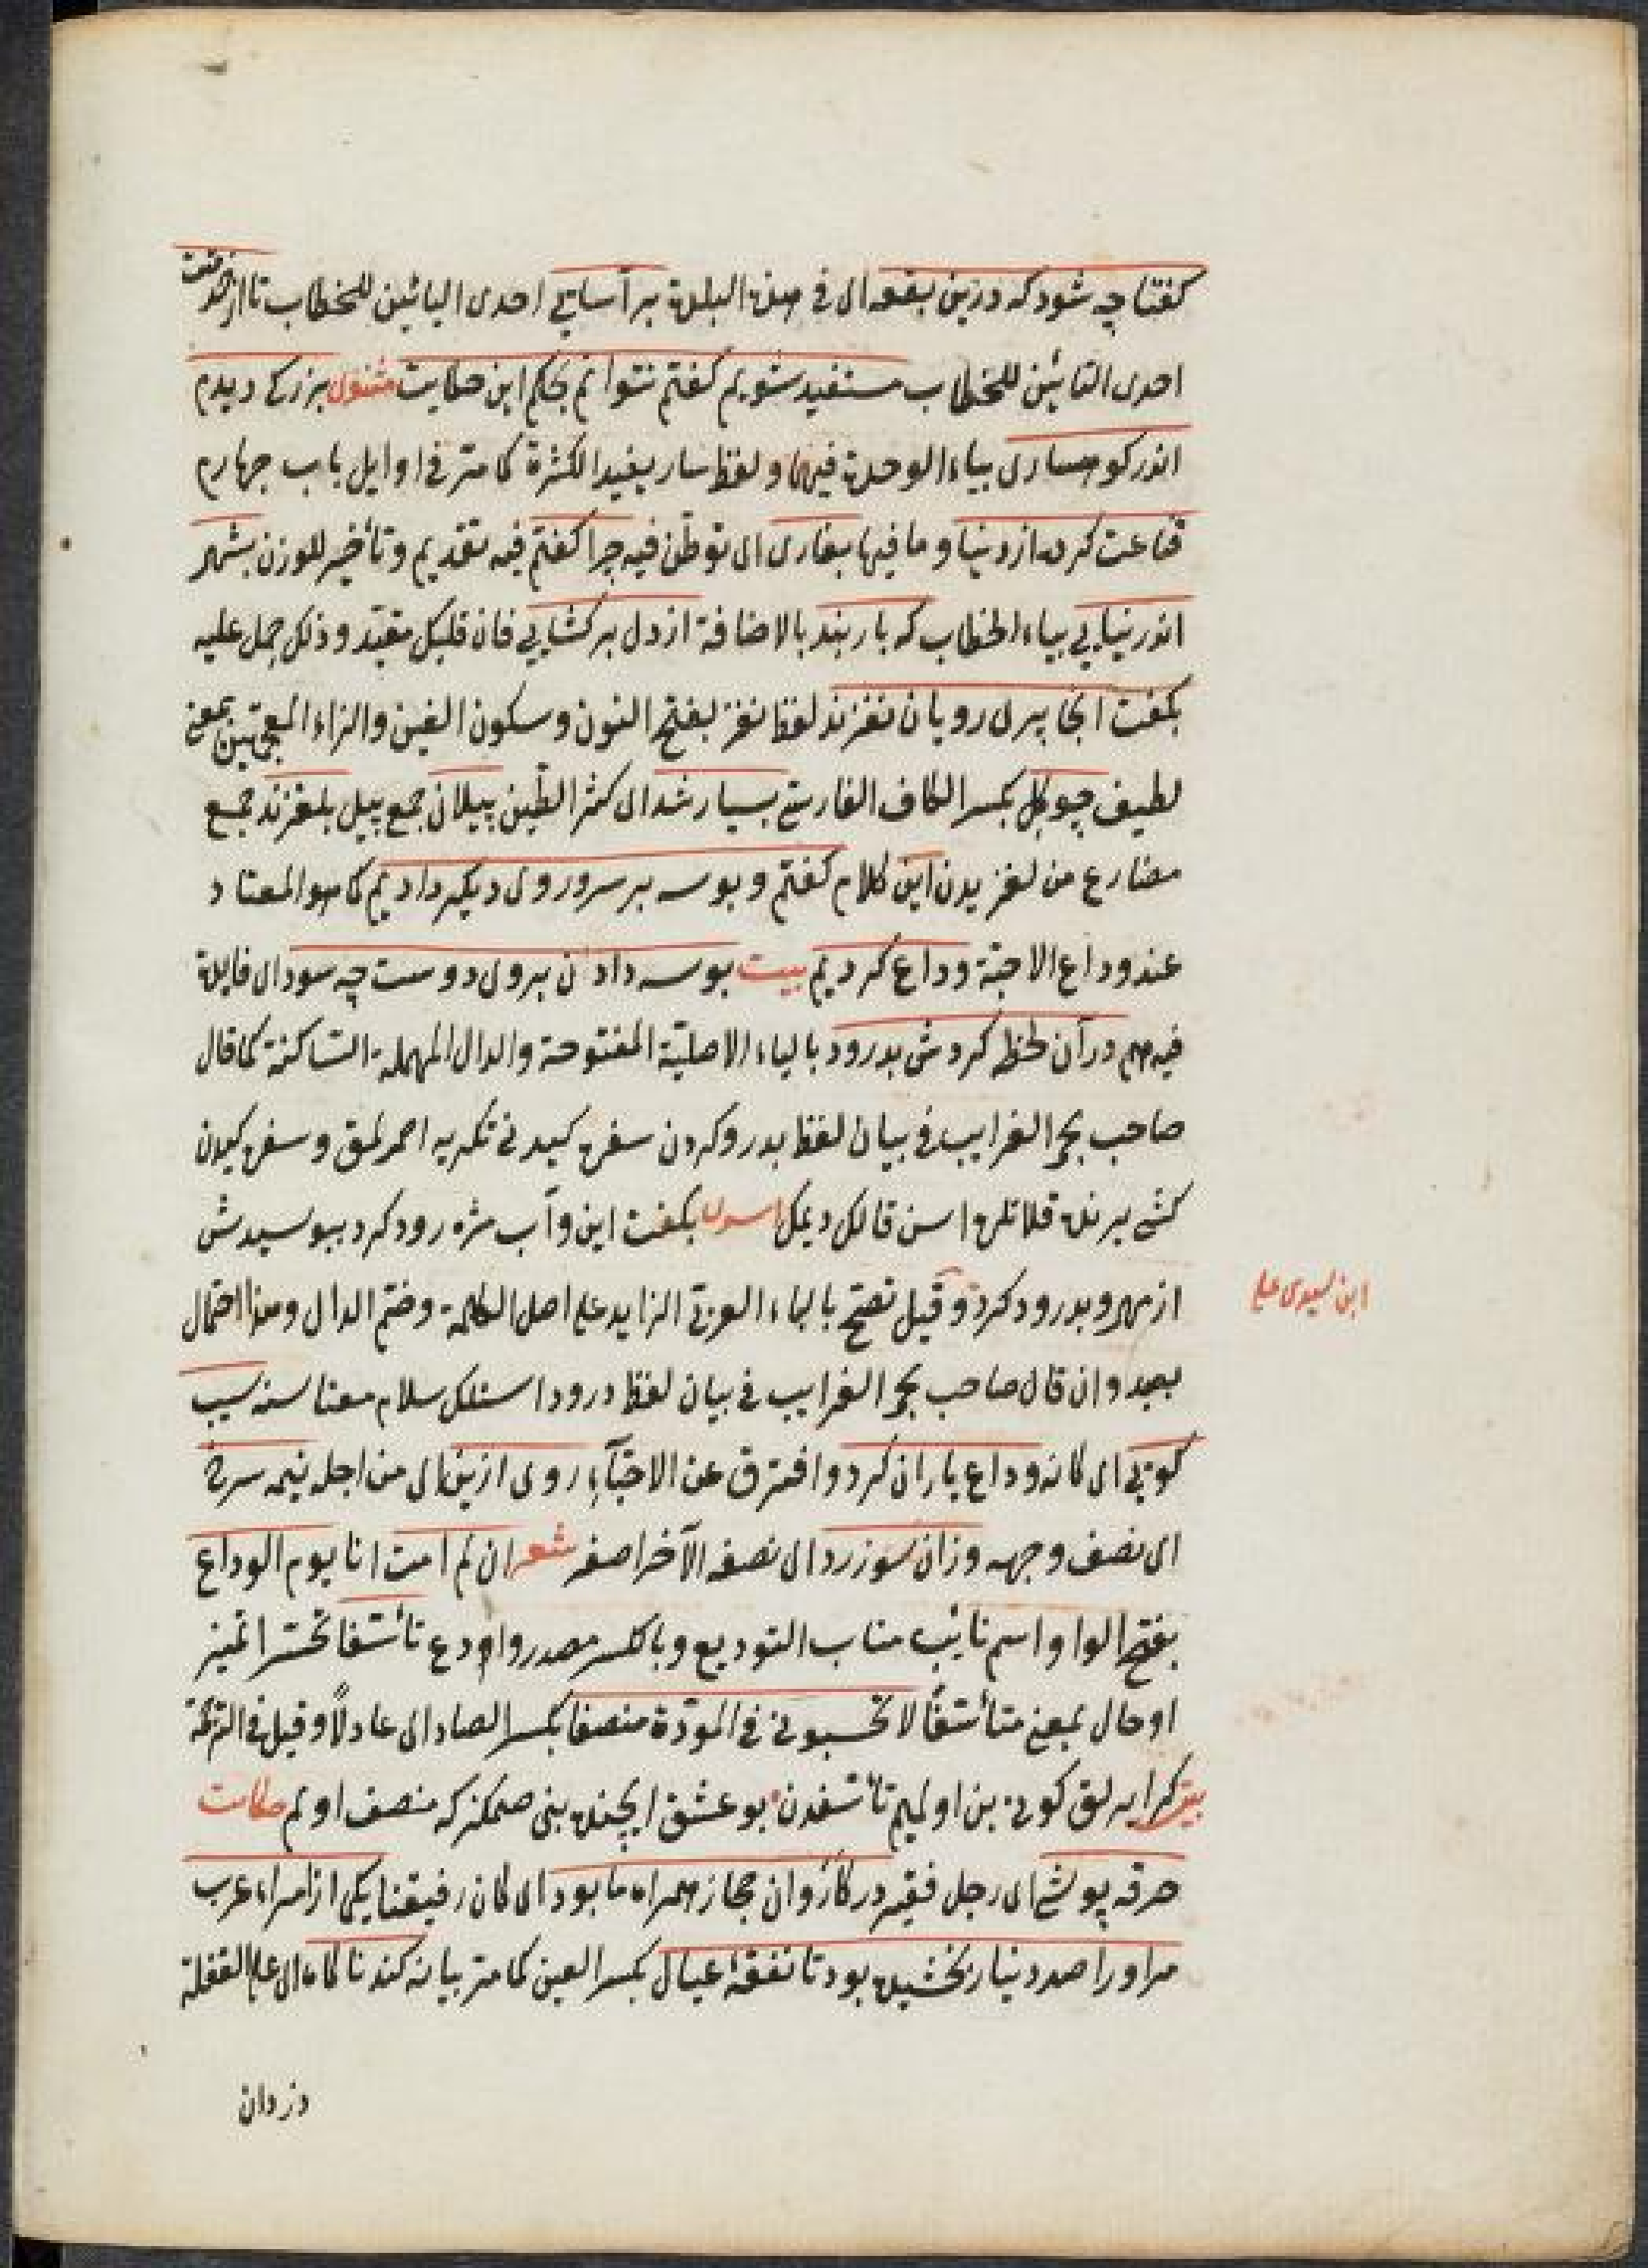 کفتا چه شود که درین بقعه ای فی هذه البلدة برآسایی احدی الیائین للخطاب تا از خدمتت
احدی التائین للخطاب مستفید شویم کفتم نتوانم بحکم این حکایت مثنوی بزرکی دیدم
اندر کوهساری بیاء الوحدة فیهما ولفظ سار یفید الکثرة کما مر فی اوایل باب چهارم
قناعت کرده از دنیا و ما فیها بغاری ای توطّن فیه چرا کفتم فیه تقدیم وتأخیر للوزن بشهر
اندر نیایی بیاء الخطاب که بار بند بالاضافة از دل برکشایی فان قلبک مقیّد وذلک حمل علیه
بکفت آنجا پری رویان نغزند لفظ نغز بفتح النون وسکون الغین والزاء المعجمتین بمعنی
لطیف چو کل بکسر الکاف الفارسی بسیار شد ای کثر الطّین پیلان جمع پیل بلغزند جمع
مضارع من لغزیدن این کلام کفتم وبوسه بر سر و روی دیکر دادیم کما هو المعتاد
عند وداع الاحبّة وداع کردیم بیت بوسه دادن بروی دوست چه سود ای فایدة
فیه هم در آن لحظه کردش بدرود بالباء الاصلیّة المفتوحة والدال المهملة السّاکنة کما قال
صاحب بحر الغرایب فی بیان لفظ بدرو کردن سفره کیدنی تکریه اصمرلمق وسفره کیدن
کشی یرنده قلانلره اسن قالک دیمک بکفت این وآب مژه رود کرد ببوسیدش
از مهر وبدرود کرد وقیل تفتح بالباء العربی الزاید علی اصل الکلمة وضم الدال وهذا احتمال
بعید وان قال صاحب بحر الغرایب فی بیان لفظ درود اسنلک سلام معناسنه سیب
کویی ای کانه وداع یاران کرد وافترق عن الاحبّآء روی ازین ای من اجله نیمه سرخ
ای نصف وجهه وزان سو زرد ای نصفه الآخر اصفر شعر ان لم امت انا یوم الوداع
بفتح الواو اسم نایب مناب التودیع وبالکسر مصدر وادع تأسّفا تحسّرا تمیز
او حال بمعنی متأسّفا لا تحسبونی فی المودّة منصفا بکسر الصاد ای عادلاً وقیل فی الترکیّة
بیت کر ایرلق کونی بن اولمیم تأسفدن بو عشق ایچنده بنی صمکز که منصف اولم حکایت
خرقه پوشی ای رجل فقیر در کاروان حجاز همراه ما بود ای کان رفیقنا یکی از امراء عرب
مر اورا صد دینار بخشیده بود تا نفقهٔ عیال بکسر العین کما مر بیانه کند ناکاه ای علی الغفلة
ابن سیدی علی
دزدان